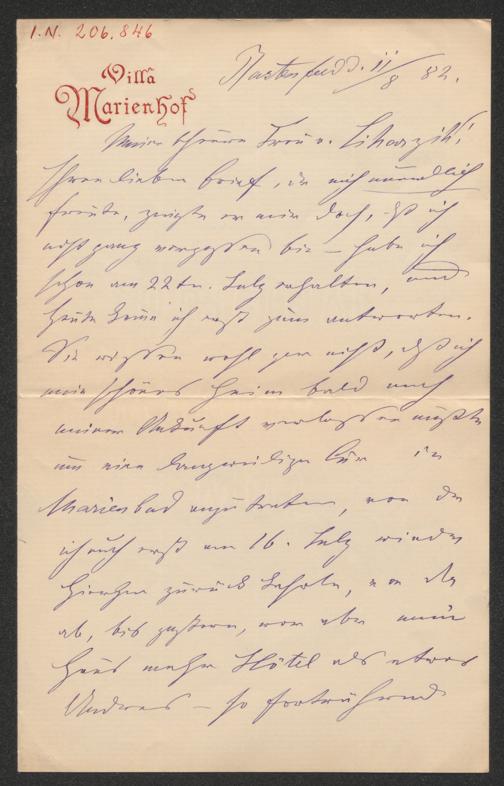 I.N. 206.846
Villa
Marienhof
Rastenfeld d. 11/8 82.
Meine theure Frau v. Littrow!
Ihren lieben Brief, der mich unendlich
freute, zeigte er mir doch, daß ich
nicht ganz vergessen bin – habe ich
schon am 22ten July erhalten, und
heute komme ich erst zum antworten.
Sie wissen wohl gar nicht, daß ich
mein schönes Heim bald nach
meiner Ankunft verlassen mußte
um eine langweilige Cur in
Marienbad anzutreten, von der
ich auch erst am 16. July wieder
hierher zurück kehrte, von da
ab, bis gestern, war aber mein
Haus mehr Hôtel als etwas
Anderes – so fortwährend